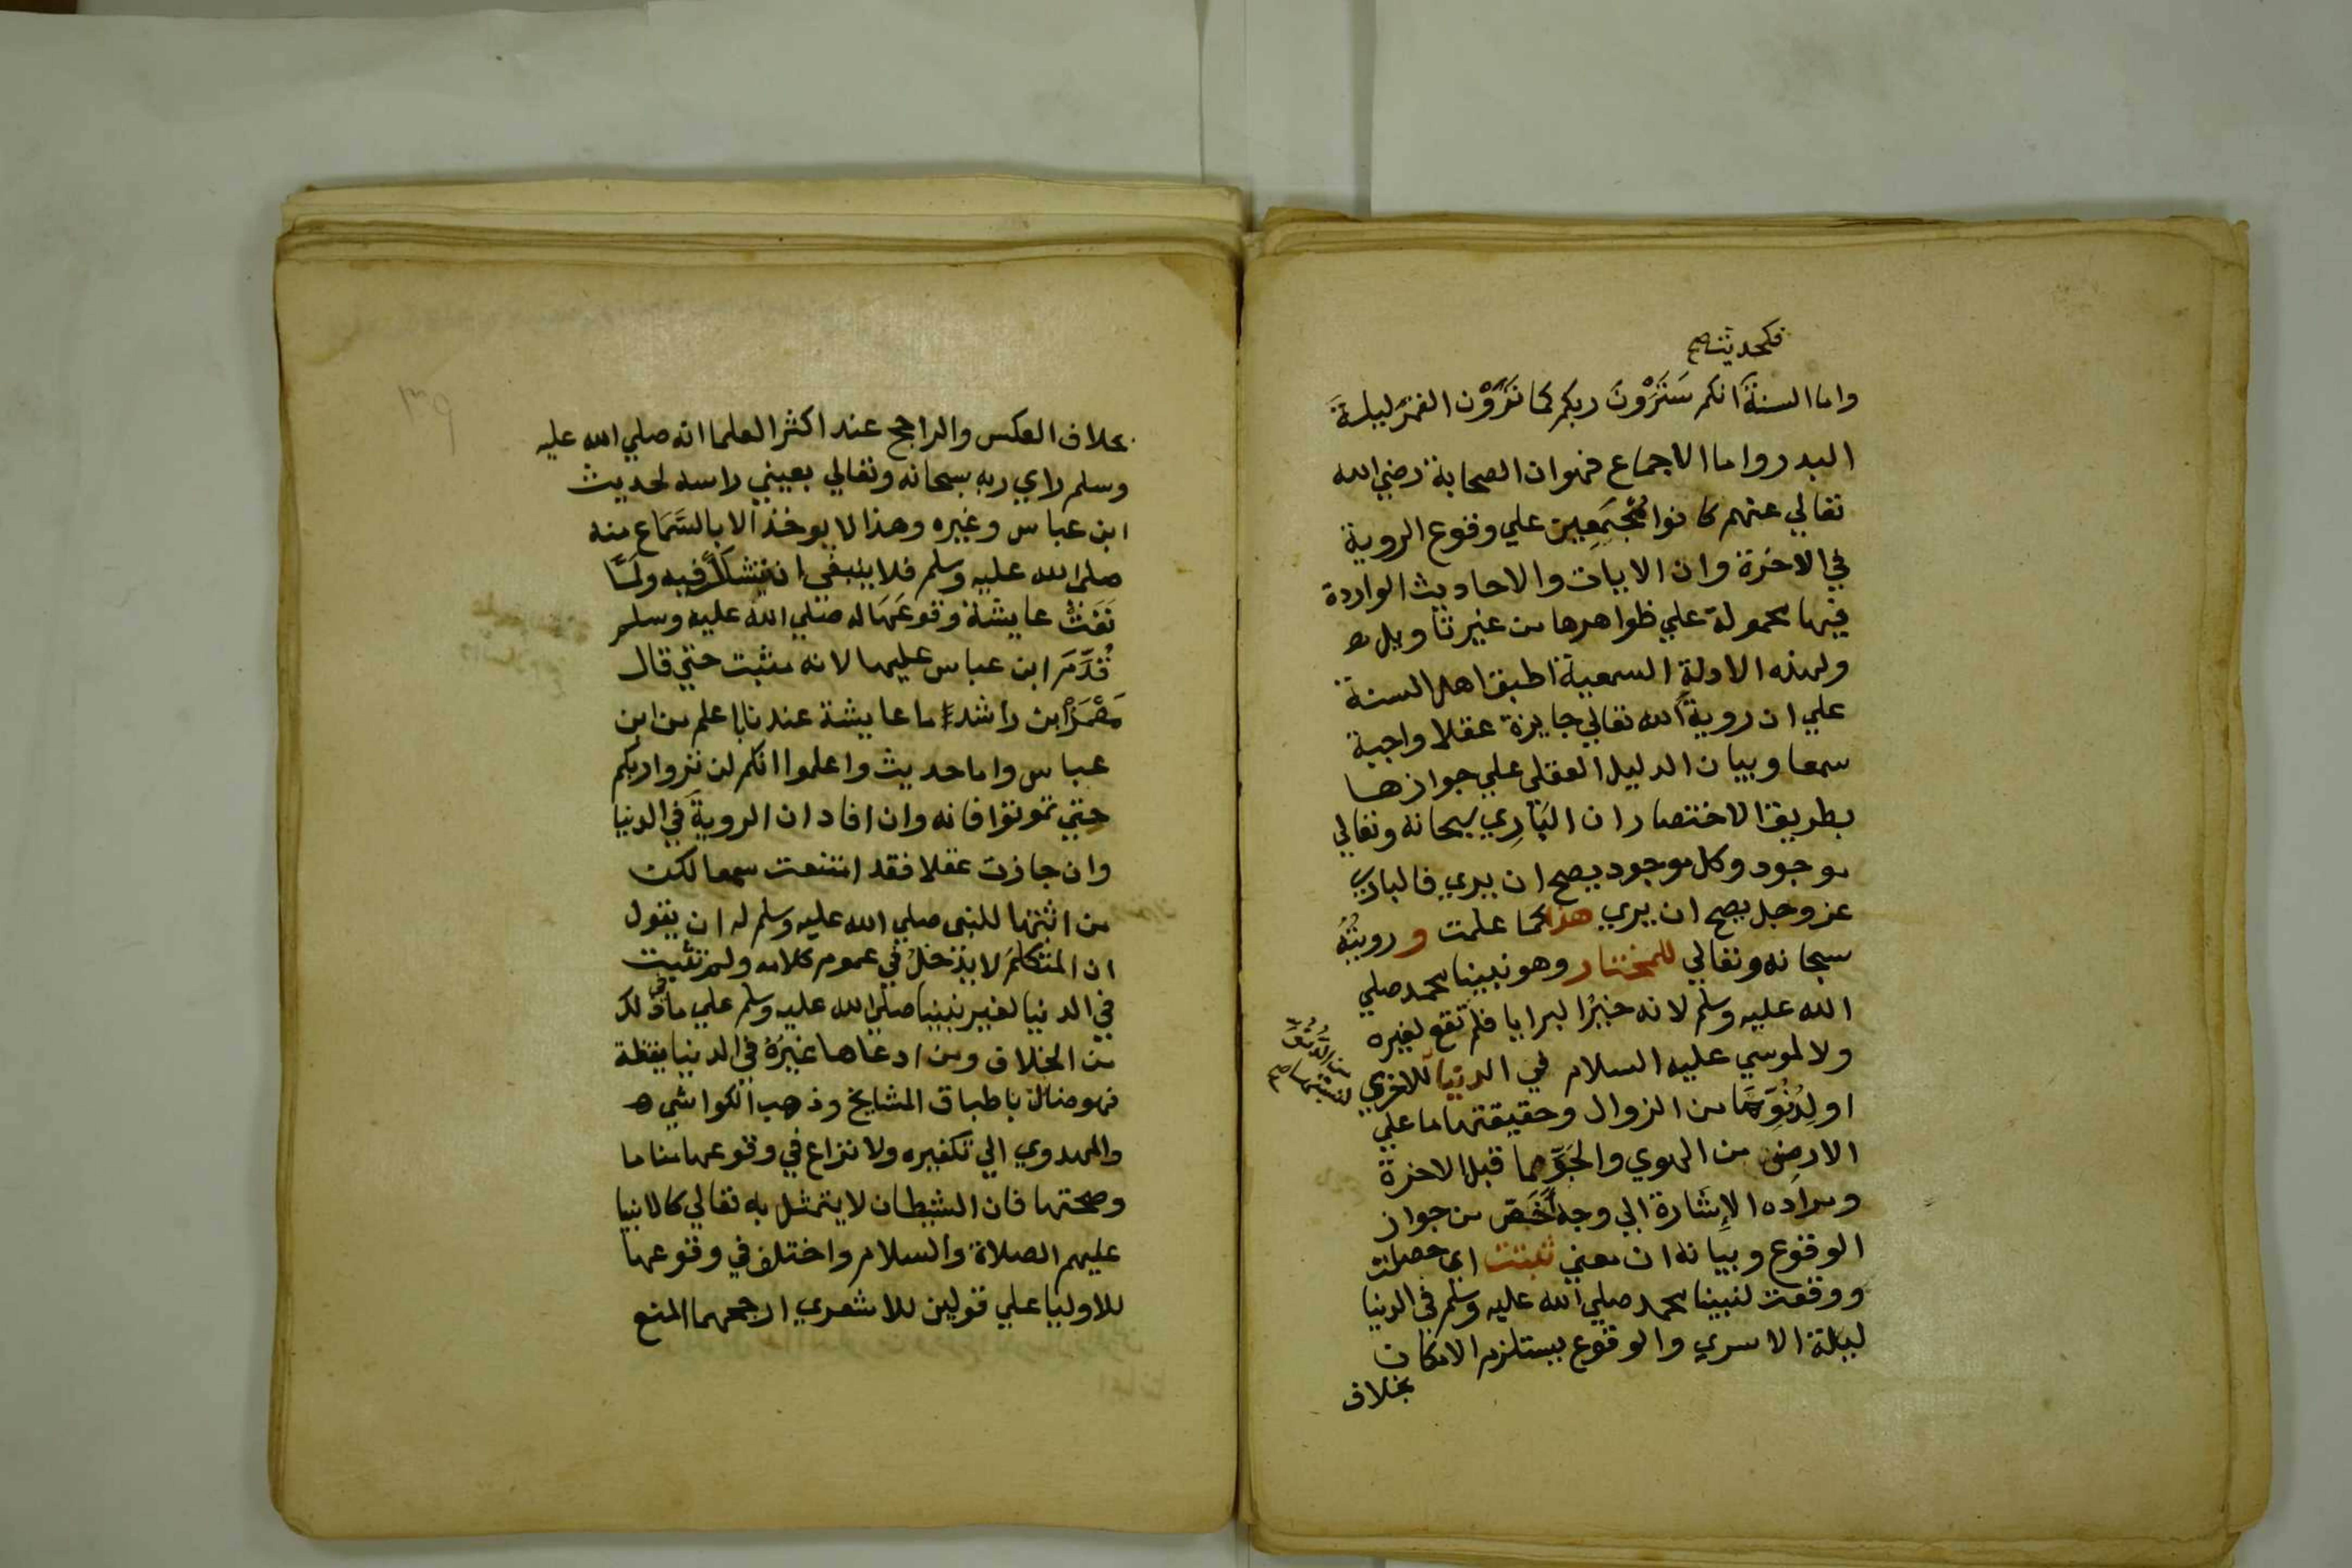 فكحديث صح
واما السنة انكم سَتَرَوْنَ ربكم كما تَرَوْن القمرَ ليلةَ
البدر واما الاجماع فهو ان الصحابة رضي الله
تعالي عنهم كانوا مُجْتَمِعِين علي وقوع الروية
في الاخرة وان الايات والاحاديث الواردة
فيها محمولة علي ظواهرها من غير تاويل
ولهذه الادلةِ السمعية اطبق اهل السنة
علي ان رويةَ الله تعالي جايزة عقلا واجبة
سمعا وبيان الدليل العقلي علي جوازها
بطريق الاختصار ان البَارِي سبحانه وتعالي
موجود وكل موجود يصح ان يري فالباري
عز وجل يصح ان يري هذا كما علمت و رويتُهُ
سبحانه وتعالي للمختار وهو نبينا محمد صلي
الله عليه وسلم لانه خيرُ البرايا فلم تقع لغيره
ولا لموسي عليه السلام في الدنيا للاخري
اولِدُنُوِّهَا من الزوال وحقيقتها ما علي
الارض من الهوي والجَوِّ مما قبل الاخرة
ومراده الاِشارة الي وجه اَخَصّ من جواز
الوقوع وبيانه ان معني ثبتت اي حصلت
ووقعت لنبينا محمد صلي الله عليه وسلم في الدنيا
ليلة الاسري والوقوع يستلزم الامكان
بخلاف
بخلاف العكس والراجح عند اكثر العلما انه صلي الله عليه
وسلم راي ربه سبحانه وتعالي بعيني راسه لحديث
ابن عباس وغيره وهذا لا يوخذ الا بالسَّمَاع منه
صلي الله عليه وسلم فلا ينبغي ان يتشكك فيه ولمَّا
نَفَتْ عايشة وقوعَهَا له صلي الله عليه وسلم
قُدِّمَ ابن عباس عليها لانه مثبت حتي قال
مَعْمَرُ ابن راشد ما عايشة عندنا باعلم من ابن
عباس واما حديث واعلموا انكم لن تروا ربكم
حتي تموتوا فانه وان افاد ان الرويةَ في الدنيا
وان جازت عقلا فقد امتنعت سمعا لكن
من اثبتها للنبي صلي الله عليه وسلم له ان يقول
ان المتكلمُ لا يدْخلُ في عموم كلامه ولم تثبت
في الدنيا لغير نبينا صلي الله عليه وسلم علي ما في ذلك
من الخلاف ومن ادعاها غيرُهُ في الدنيا يقظة
فهو ضال باطباق المشايخ وذهب الكواشي
والمهدوي الي تكفيره ولا نزاع في وقوعها مناما
وصحتها فان الشيطان لا يتمثل به تعالي كالانبيا
عليهم الصلاة والسلام واختلف في وقوعها
للاوليا علي قولين للاشعري ارجحهما المنع